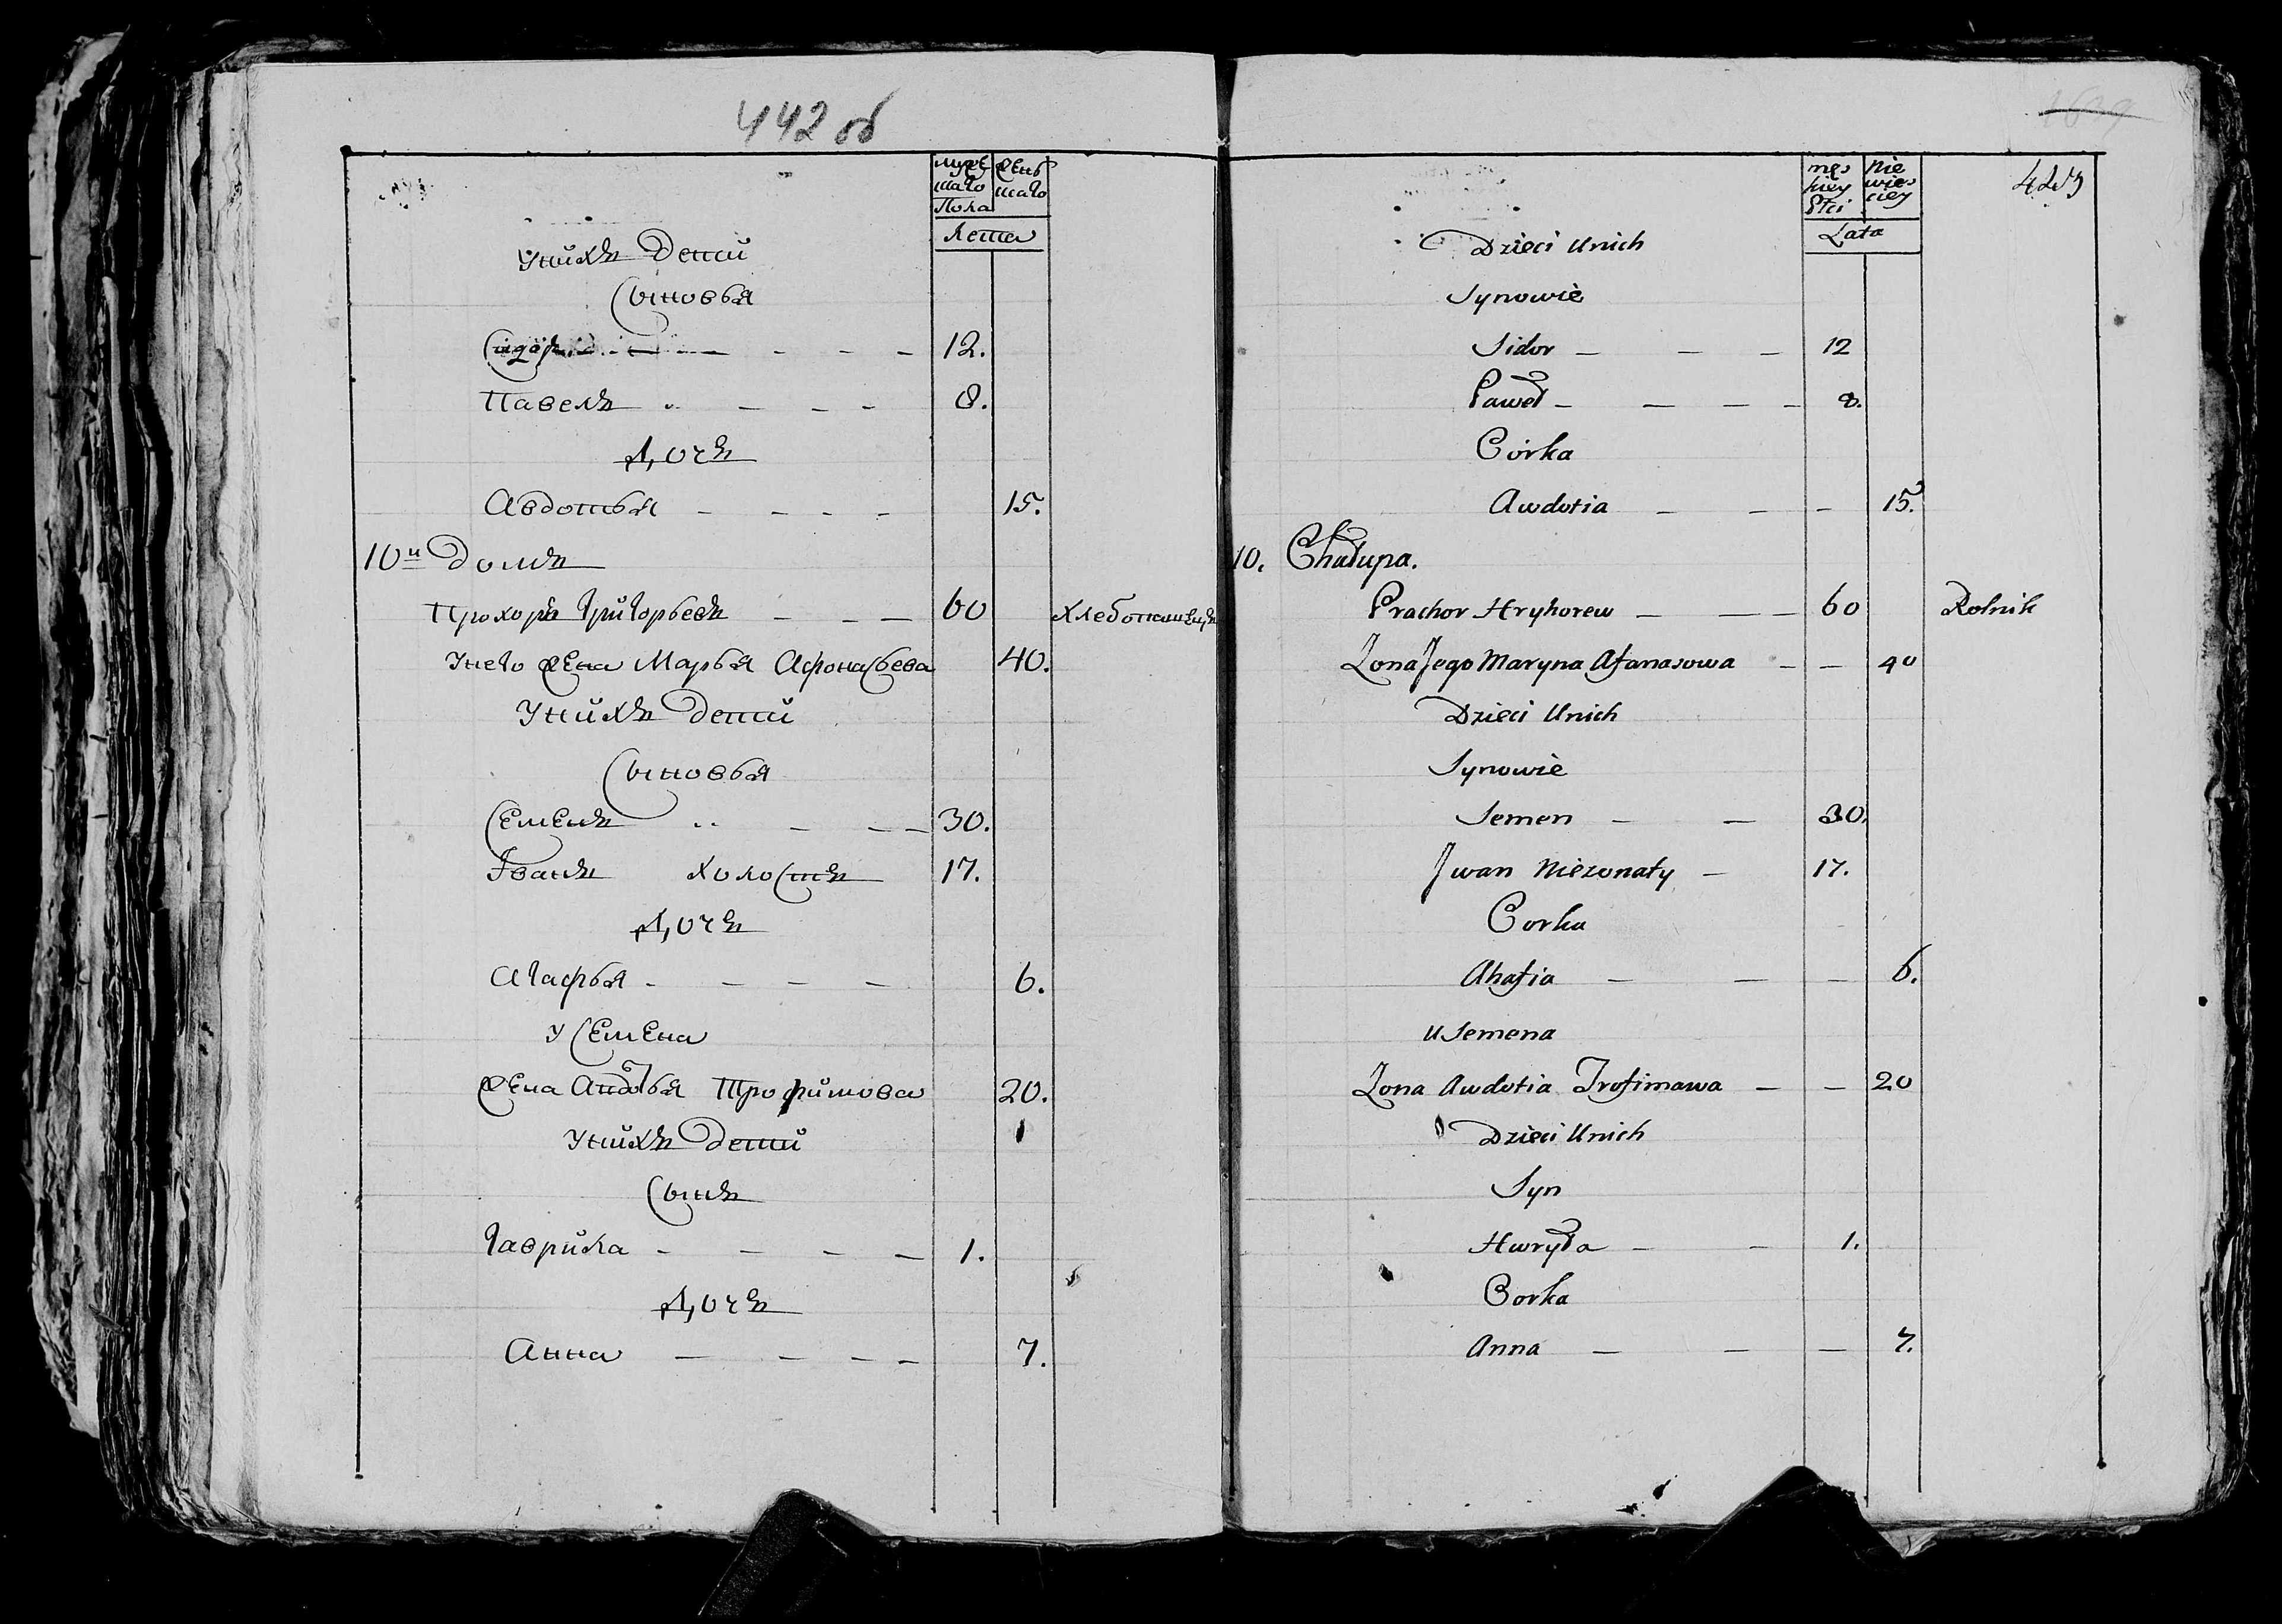 442 об
мужеска го
Пола
Женс
каго
Лета
Унихъ Дети
Сыновья
Сидоръ 12.
Павелъ 8.
Дочь
Авдотья 15.
10й Домъ
Прохоръ Григорьевъ 60 Хлебопашецъ
Унего жена Марья Афонасьева 40.
Унихъ Дети
Сыновья
Семенъ 30.
Иванъ холостъ 17.
Дочь
Агафья 6.
У Семена
жена Авдотья Трофимова 20.
Унихъ Дети
Сынъ
Гаврила 1.
Дочь
Анна 7.
męs
kiey
Płci
Nie
wies
ciey
Lata
Dzieci Unich
Synowie
Sidor 12
Paweł 8.
Córka
Awdotia 15.
10. Chałupa.
Prachor Hryhorew 60 Rolnik
Zona Jego Maryna Afanasowa 40
Dzieci Unich
Synowie
Semen 30.
Jwan Niezonaty 17.
Corka
Ahafia 6.
U Semena
Zona Awdotia Trofimawa 20
Dzieci Unich
Syn
Hwryła 1.
Corka
Anna 7.